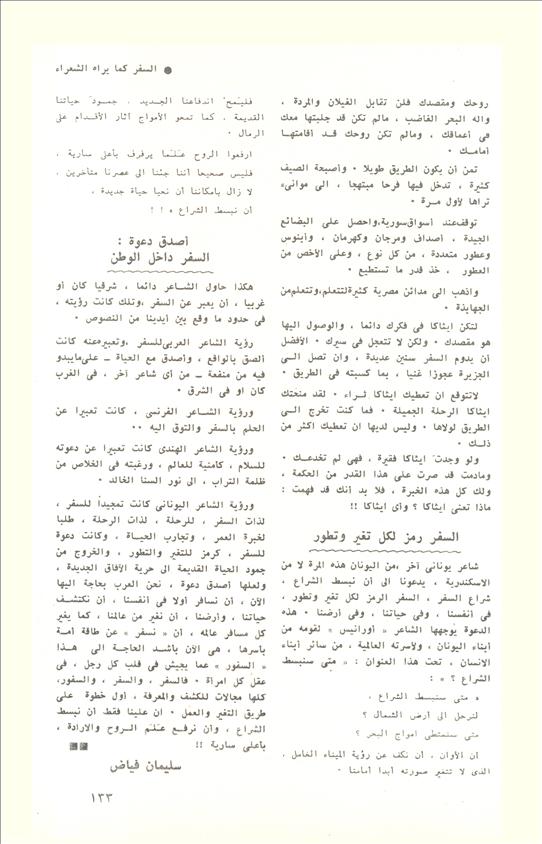 ● السفر كما يراه الشعراء
روحك ومقصدك فلن تقابل الغيلان والمردة ،
واله البحر الغاضب ، مالم تكن قد جلبتها معك
فى أعماقك ، ومالم تكن روحك قد أقامتها
أمامك ٠
تمن أن يكون الطريق طويلا ٠ وأصبحة الصيف
كثيرة ، تدخل فيها فرحا مبتهجا ، الى موانىء
تراها لأول مرة ٠
توقف عند أسواق سورية ، واحصل على البضائع
الجيدة ، أصداف ومرجان وكهرمان ، وأبنوس
وعطور متعددة ، من كل نوع ، وعلى الأخص من
العطور ، خذ قدر ما تستطيع ٠
واذهب الى مدائن مصرية كثيرة لتتعلم ، وتتعلم من
الجهابذة ٠
لتكن ايثاكا فى فكرك دائما ، والوصول اليها
هو مقصدك ٠ ولكن لا تتعجل فى سيرك ٠ الأفضل
أن يدوم السفر سنين عديدة ، وان تصل الى
الجزيرة عجوزا غنيا ، بما كسبته فى الطريق ٠
لاتتوقع ان تعطيك ايثاكا ثراء ٠ لقد منحتك
ايثاكا الرحلة الجميلة ٠ فما كنت تخرج الى
الطريق لولاها ٠ وليس لديها ان تعطيك اكثر من
ذلك ٠
ولو وجدت ايثاكا فقيرة ، فهى لم تخدعك ٠
ومادمت قد صرت على هذا القدر من الحكمة ،
ولك كل هذه الخبرة ، فلا بد أنك قد فهمت :
ماذا تعنى ايثاكا ؟ وأى ايثاكا !!
السفر رمز لكل تغير وتطور
شاعر يونانى آخر ، من اليونان هذه المرة لا من
الاسكندرية ، يدعونا الى أن نبسط الشراع ،
شراع السفر ، السفر الرمز لكل تغير وتطور ،
فى أنفسنا ، وفى حياتنا ، وفى أرضنا ٠ هذه
الدعوة يوجهها الشاعر « أورانيس » لقومه من
أبناء اليونان ، ولأسرته العالمية ، من سائر أبناء
الانسان ، تحت هذا العنوان : « متى سنبسط
الشراع ؟ » :
« متى سنبسط الشراع ،
لنرحل الى أرض الشمال ؟
متى سنمتطى امواج البحر ؟
أن الأوان ، أن نكف عن رؤية الميناء الخامل ،
الذى لا تتغير صورته أبدا أمامنا ٠
فليمح اندفاعنا الجديد ، جمود حياتنا
القديمة ، كما تمحو الأمواج آثار الأقدام على
الرمال ٠
ارفعوا الروح علما يرفرف بأعلى سارية ،
فليس صحيحا أننا جئنا الى عصرنا متأخرين ،
لا زال بامكاننا أن نحيا حياة جديدة ،
أن نبسط الشراع » ! !
أصدق دعوة :
السفر داخل الوطن
هكذا حاول الشاعر دائما ، شرقيا كان أو
غربيا ، أن يعبر عن السفر ، وتلك كانت رؤيته ،
فى حدود ما وقع بين أيدينا من النصوص ٠
رؤية الشاعر العربى للسفر ، وتعبيره عنه كانت
ألصق بالواقع ، وأصدق مع الحياة ــ على مايبدو
فيه من منفعة ــ من أى شاعر آخر ، فى الغرب
كان او فى الشرق ٠
ورؤية الشاعر الفرنسى ، كانت تعبيرا عن
الحلم بالسفر والتوق اليه ٠٠
ورؤية الشاعر الهندى كانت تعبيرا عن دعوته
للسلام ، كامنية للعالم ، ورغبته فى الخلاص من
ظلمة التراب ، الى نور السنا الخالد ٠
ورؤية الشاعر اليونانى كانت تمجيدا للسفر ،
لذات السفر ، للرحلة ، لذات الرحلة ، طلبا
لخبرة العمر ، وتجارب الحياة ، وكانت دعوة
للسفر ، كرمز للتغير والتطور ، والخروج من
جمود الحياة القديمة الى حرية الآفاق الجديدة ،
ولعلها أصدق دعوة ، نحن العرب بحاجة اليها
الآن ، أن نسافر أولا فى أنفسنا ، أن نكتشف
حياتنا ، وأرضنا ، أن نغير من عالمنا ، كما يغير
كل مسافر عالمه ، أن « نسفر » عن طاقة أمة
بأسرها ، هى الآن بأشد الحاجة الى هذا
« السفور » عما يجيش فى قلب كل رجل ، فى
عقل كل امرأة ٠ فالسفر ، والسفر ، والسفور ،
كلها مجالات للكشف والمعرفة ، أول خطوة على
طريق التغير والعمل ٠ ان علينا فقط أن نبسط
الشراع ، وأن نرفع علم الروح والارادة ،
بأعلى سارية !!
سليمان فياض
١٣٣